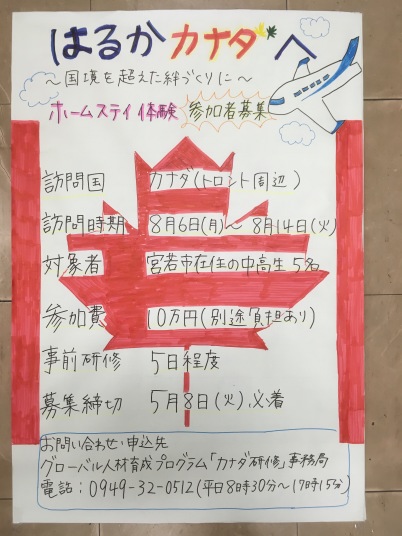 はるかカナダへ
～国境を超えた絆づくりに～
ホームステイ体験 参加者募集
訪問国 カナダ(トロント周辺)
訪問時期 8月6日(月)～8月14日(火)
対象者 宮若市在住の中高生5名
参加費 10万円(別途負担あり)
事前研修 5日程度
募集締切 5月8日(火)必着
お問い合わせ・申込先
グローバル人材育成プログラム「カナダ研修」事務局
電話：0949-32-0512(平日8時30分～17時15分)